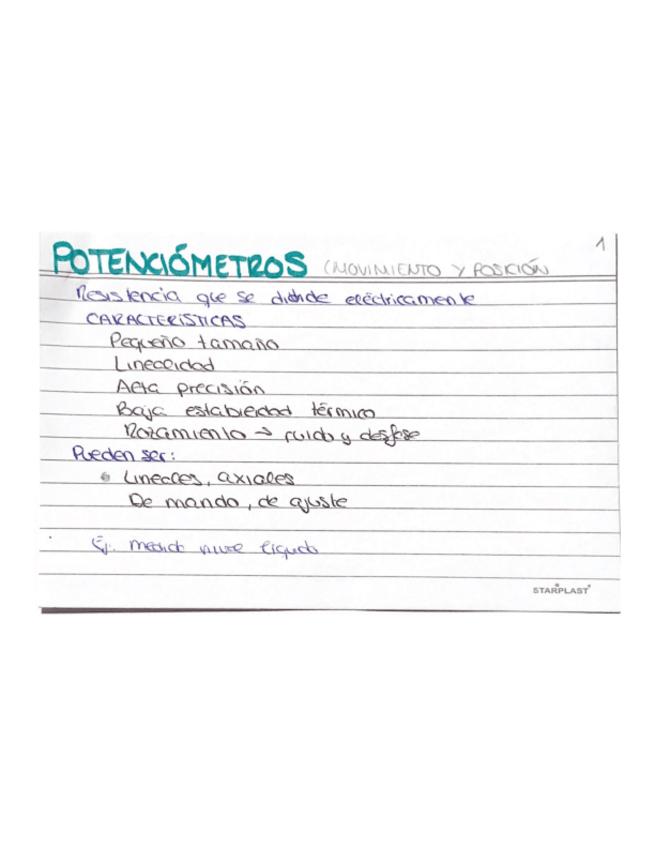 1
POTENCIÓMETROS (MOVIMIENTO Y POSICIÓN
Resistencia que se divide eléctricamente
CARACTERÍSTICAS
Pequeño tamaño
Linealidad
Alta precisión
Baja estabilidad térmica
Rozamiento → ruido y desfase
Pueden ser:
• Lineales, axiales
De mando, de ajuste
Ej. medida nivel líquido
STARPLAST